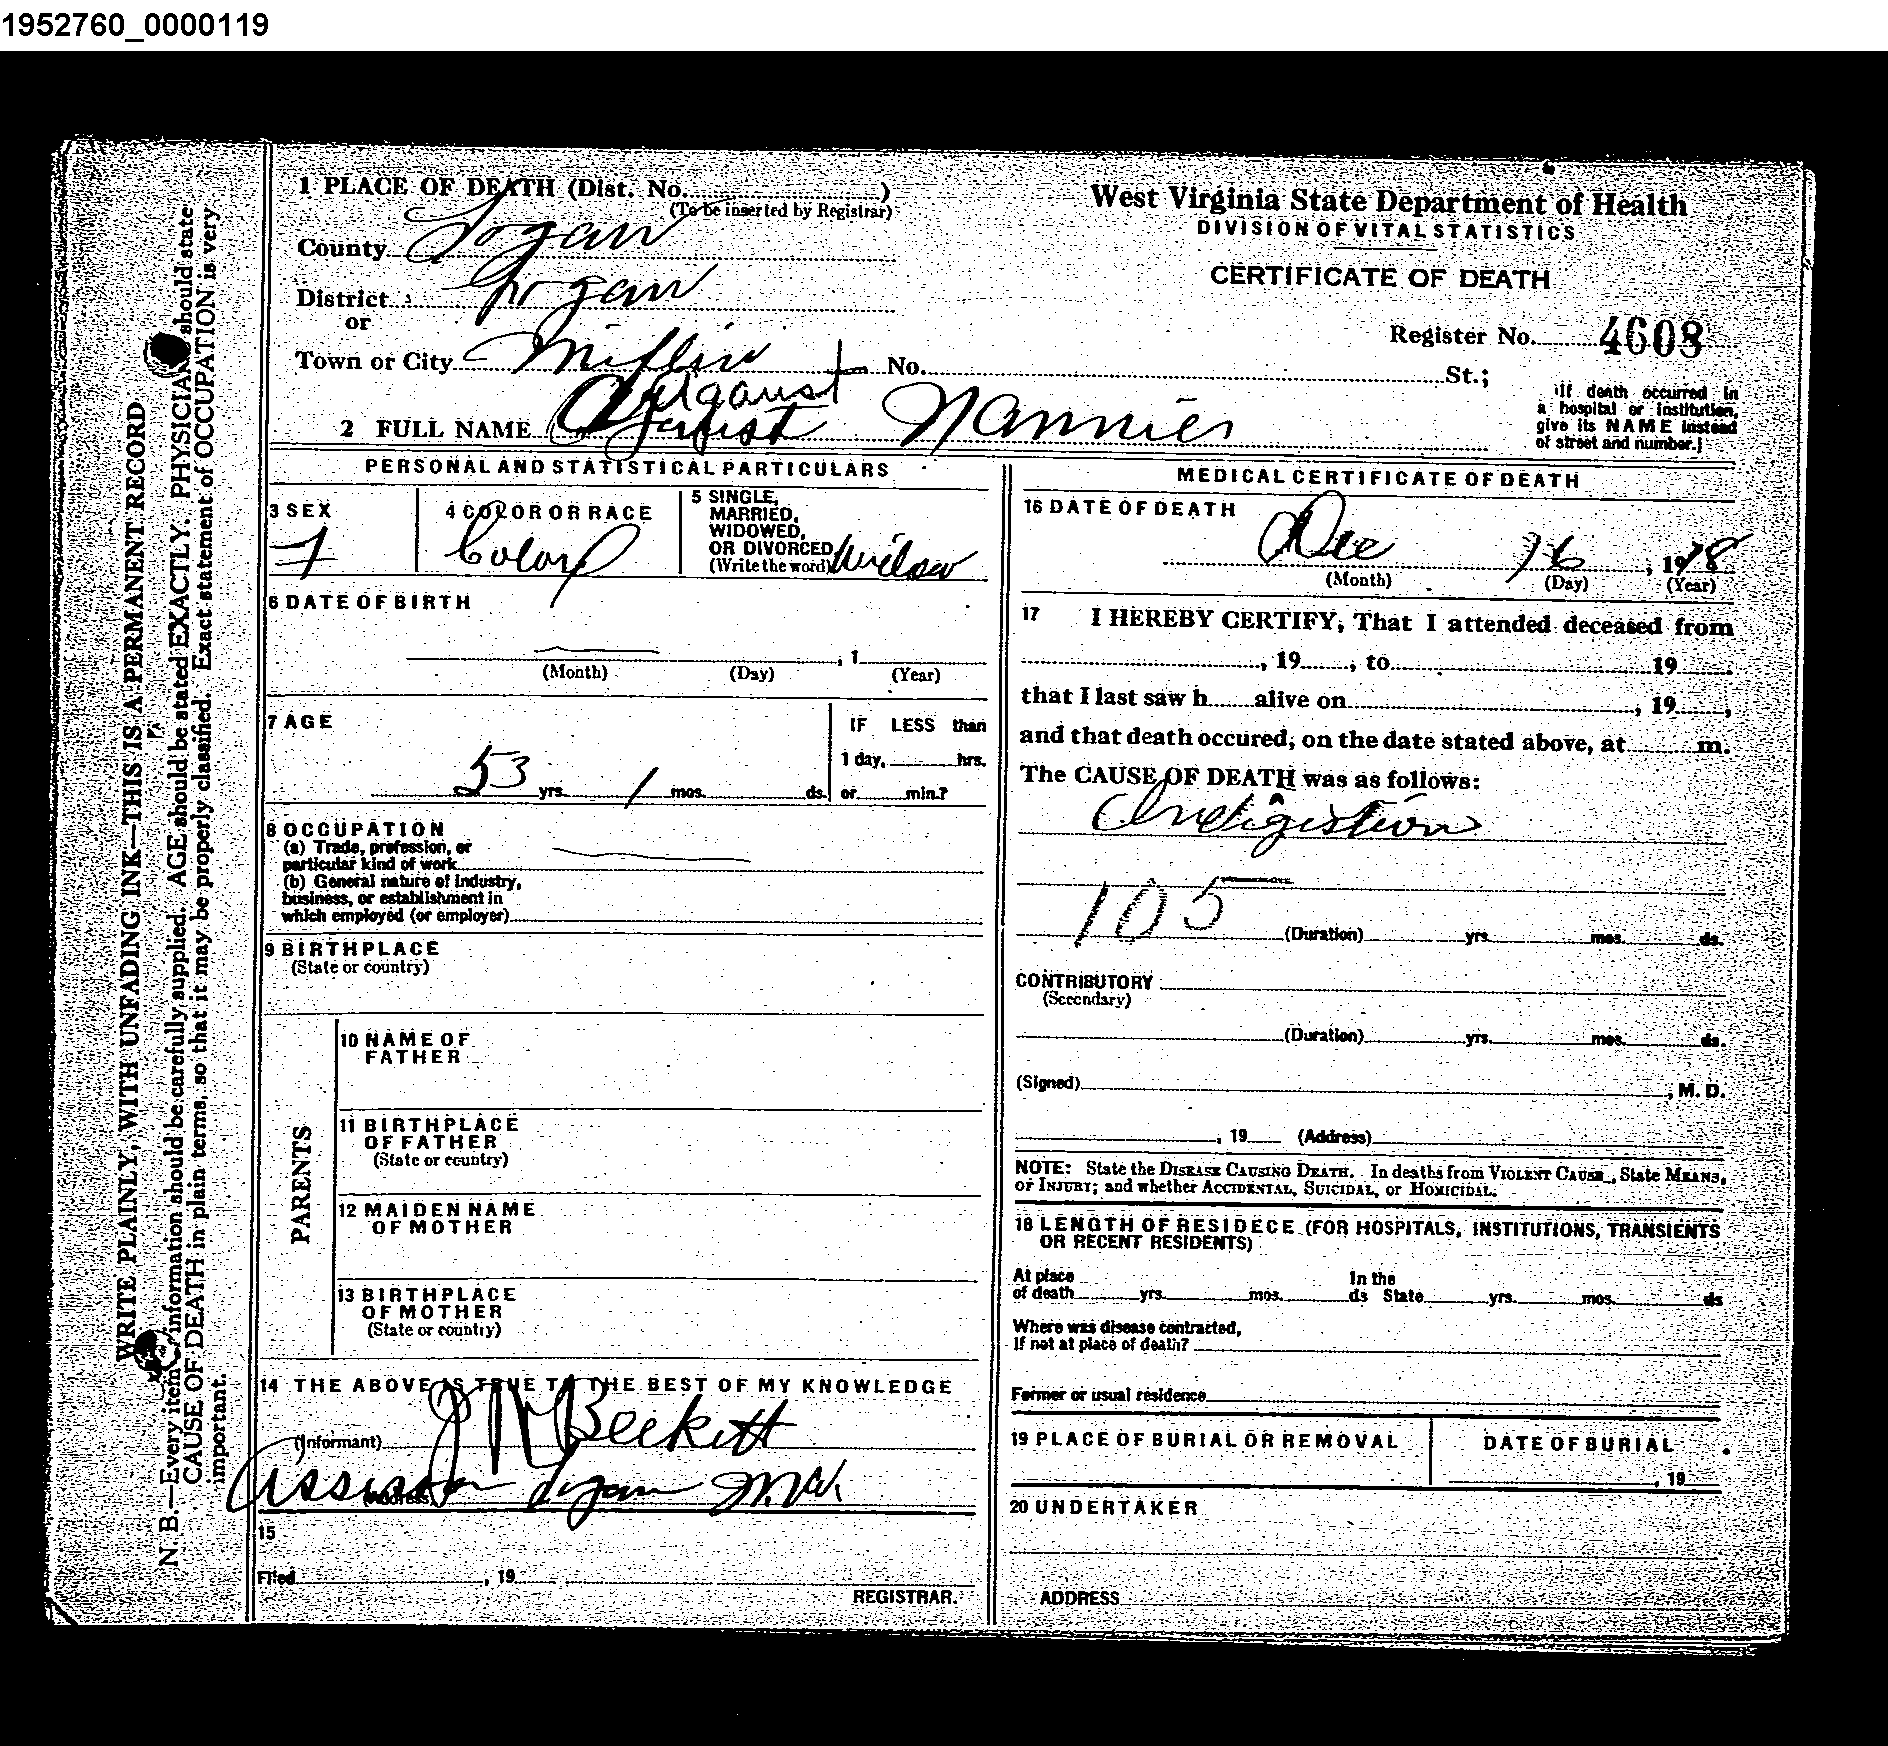 1952760_0000119
1 PLACE OF DEATH (Dist. No. )
(To be inserted by Registrar)
County Logan
District Logan
or
Town or City Mifflin No. St.;
West Virginia State Department of Health
DIVISION OF VITAL STATISTICS
CERTIFICATE OF DEATH
Register No. 4608
(If death occurred in
a hospital or institution,
give its NAME instead
of street and number.)
2 FULL NAME Nannies
PERSONAL AND STATISTICAL PARTICULARS
3 SEX
f
4 COLOR OR RACE
Colord
5 SINGLE,
MARRIED,
WIDOWED,
OR DIVORCED
(Write the word) Widow
6 DATE OF BIRTH
, 1
(Month) (Day) (Year)
7 AGE
53 yrs. 1 mos. ds.
IF LESS than
1 day, hrs.
or min.?
8 OCCUPATION
(a) Trade, profession, or
particular kind of work
(b) General nature of Industry,
business, or establishment in
which employed (or employer)
9 BIRTHPLACE
(State or country)
PARENTS
10 NAME OF
FATHER
11 BIRTHPLACE
OF FATHER
(State or country)
12 MAIDEN NAME
OF MOTHER
13 BIRTHPLACE
OF MOTHER
(State or country)
14 THE ABOVE IS TRUE TO THE BEST OF MY KNOWLEDGE
(Informant) J M Beckett
(Address) Assessor Logan
15
Filed , 19
REGISTRAR.
MEDICAL CERTIFICATE OF DEATH
16 DATE OF DEATH
Dec 16, 1918
(Month) (Day) (Year)
17 I HEREBY CERTIFY, That I attended deceased from
, 19 , to 19
that I last saw h alive on , 19 ,
and that death occured, on the date stated above, at m.
The CAUSE OF DEATH was as follows:
Indigistion
105
(Duration) yrs. mos. ds.
CONTRIBUTORY
(Secondary)
(Duration) yrs. mos. ds.
(Signed) , M. D.
, 19 (Address)
NOTE: State the DISEASE CAUSING DEATH. In deaths from VIOLENT CAUSE, State MEANS,
OF INJURY; and whether ACCIDENTAL, SUICIDAL, or HOMICIDAL.
18 LENGTH OF RESIDECE (FOR HOSPITALS, INSTITUTIONS, TRANSIENTS
OR RECENT RESIDENTS)
At place In the
of death yrs. mos. ds State yrs. mos. ds
Where was disease contracted,
If not at place of death?
Former or usual residence
19 PLACE OF BURIAL OR REMOVAL
DATE OF BURIAL
, 19
20 UNDERTAKER
ADDRESS
WRITE PLAINLY, WITH UNFADING INK—THIS IS A PERMANENT RECORD
N. B.—Every item of information should be carefully supplied. AGE should be stated EXACTLY. PHYSICIAN should state
CAUSE OF DEATH in plain terms, so that it may be properly classified. Exact statement of OCCUPATION is very
important.